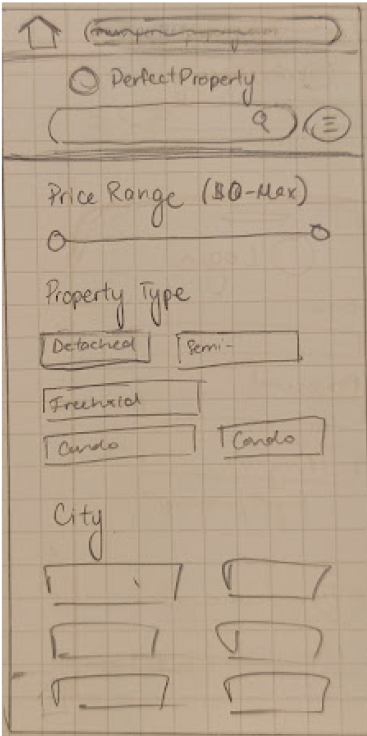 DerfectProperty
Price Range ($0-Max)
Property Type
Detached Semi-
Freehold
Condo Condo
City